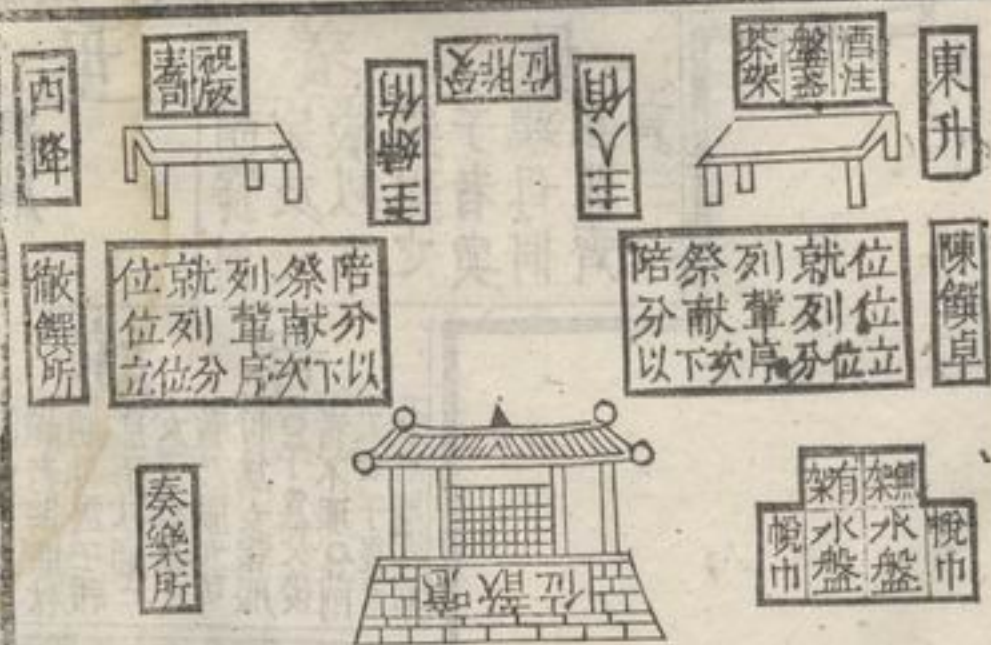 東升
酒注
盤盞
茶架
主人侑
受胙位
主婦侑
祝版
西降
陳饌卓
陪祭列就位
分献輩列位
以下次序分位立
陪祭列就位
分献輩列位
以下次序分位立
徹饌所
帨巾
無架水盤
有架水盤
帨巾
噫歆位
奏樂所